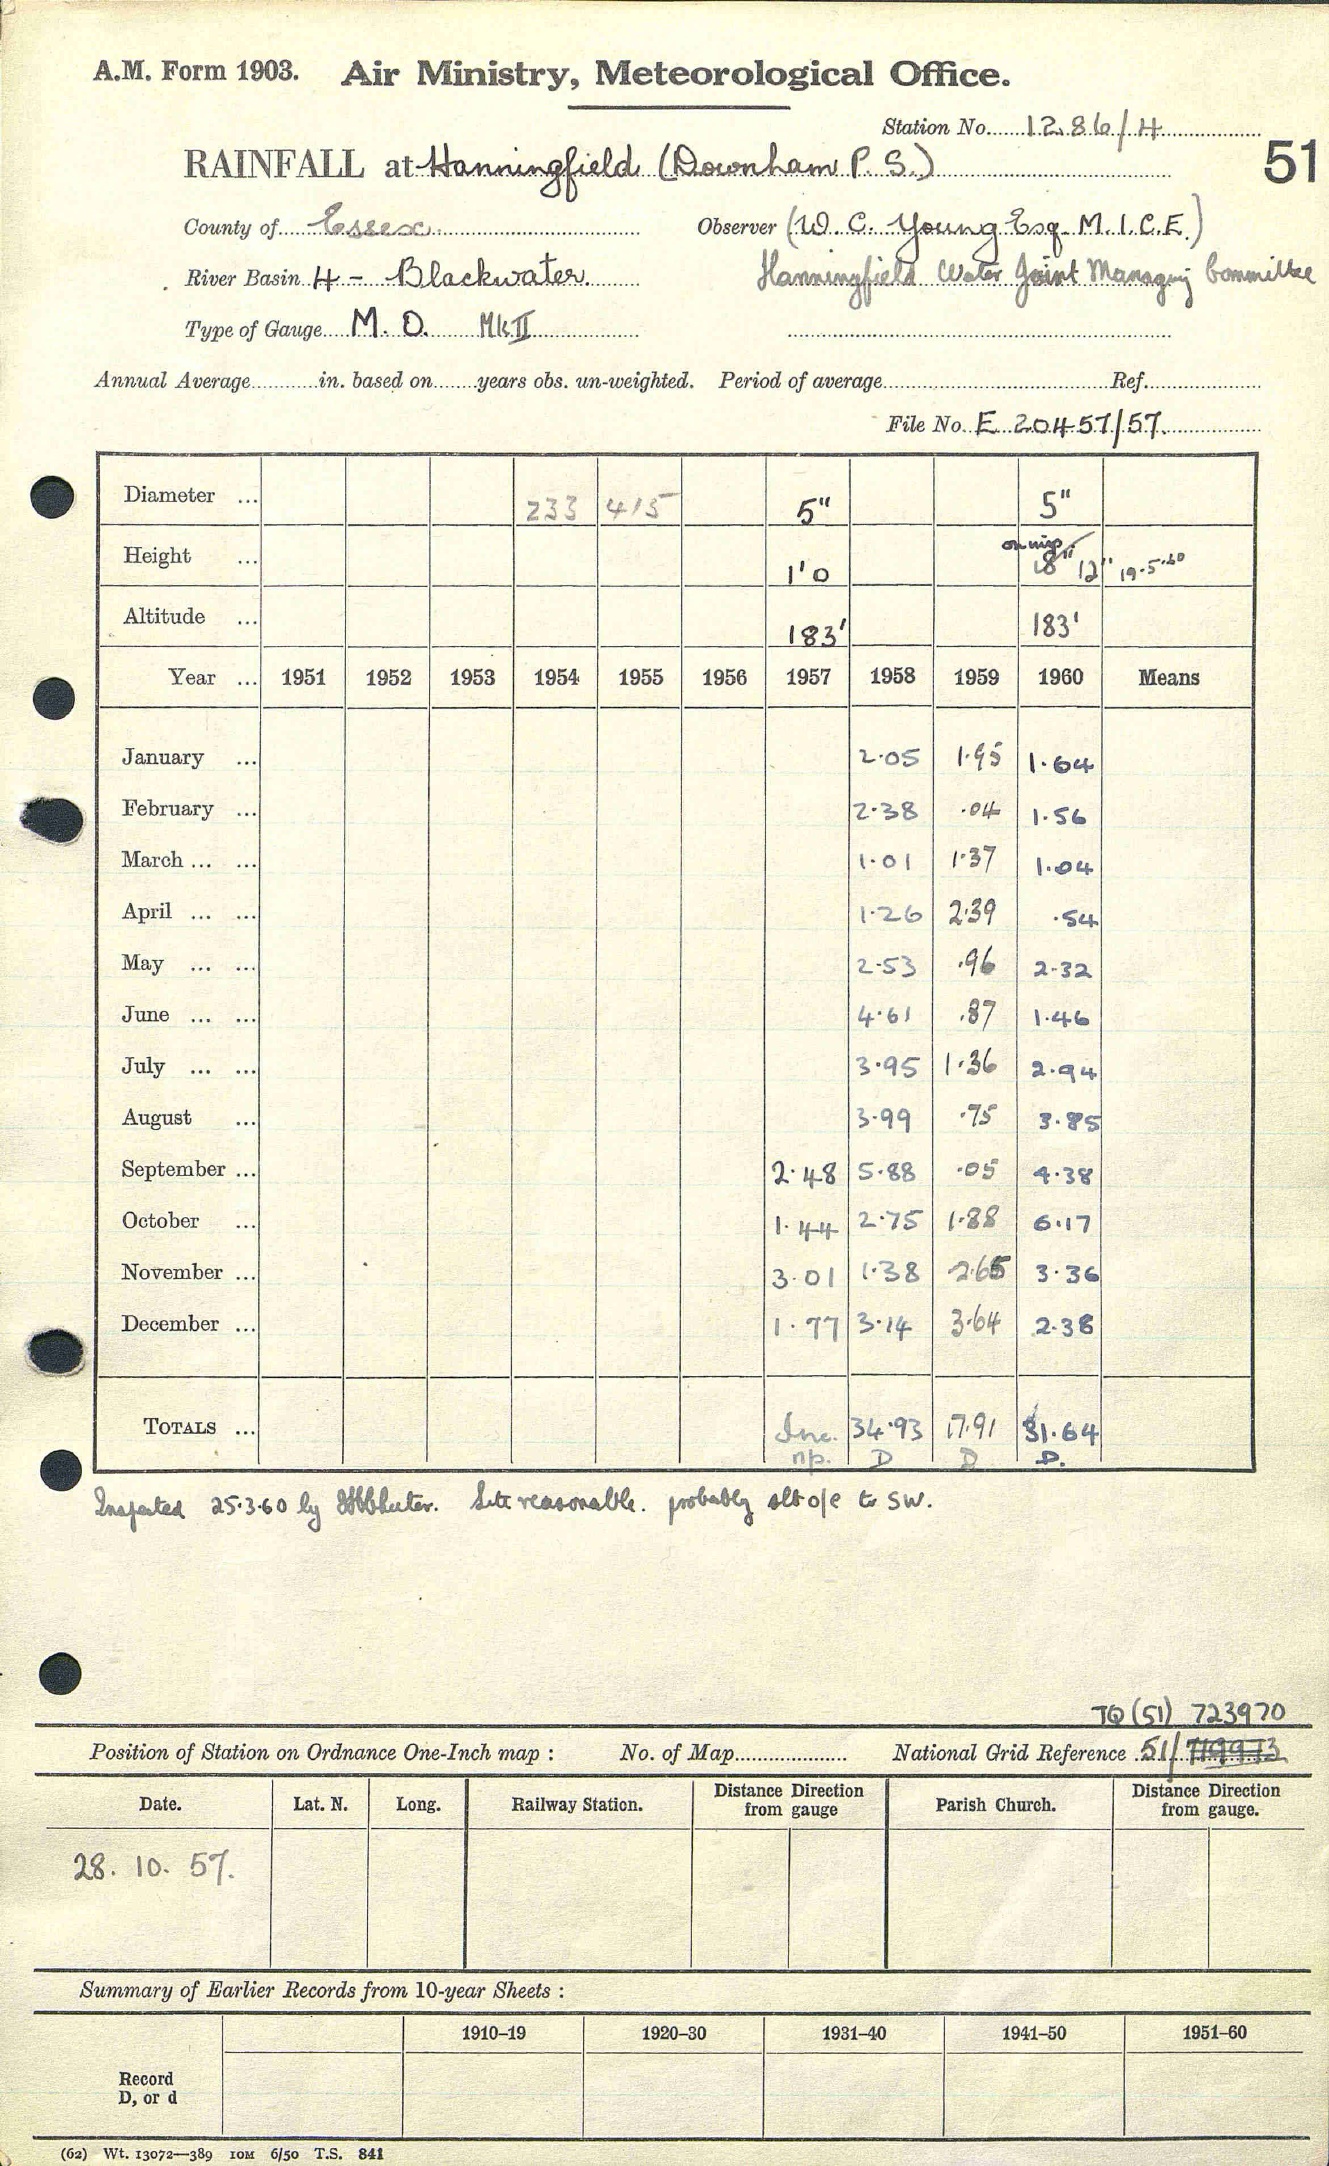 A.M. Form 1903. Air Ministry, Meteorological Office.
Station No. 1286/4
51
RAINFALL at Hanningfield (Downham P. S.)
County of Essex Observer (W. C. Young Esq. M.I.C.E.)
River Basin 4 - Blackwater Hanningfield Water Joint Managing Committee
Type of Gauge M. O. Mk II
Annual Average in. based on years obs. un-weighted. Period of average Ref.
File No. E 20457/57.
Diameter ... 233 415 5" 5"
Height ... 1'0 18" 12" 19.5.60
Altitude ... 183' 183'
Year ... 1951 1952 1953 1954 1955 1956 1957 1958 1959 1960 Means
January ... 2.05 1.95 1.64
February ... 2.38 .04 1.56
March ... ... 1.01 1.37 1.04
April ... ... 1.26 2.39 .54
May ... ... 2.53 .96 2.32
June ... ... 4.61 .87 1.46
July ... ... 3.95 1.36 2.94
August ... 3.99 .75 3.85
September ... 2.48 5.88 .05 4.38
October ... 1.44 2.75 1.88 6.17
November ... 3.01 1.38 2.65 3.36
December ... 1.77 3.14 3.64 2.38
TOTALS ... Inc. 34.93 17.91 31.64
np. D D D.
Inspected 25.3.60 by Site reasonable. probably slt o/e to SW.
TQ (51) 723970
Position of Station on Ordnance One-Inch map : No. of Map National Grid Reference 51/
Date. Lat. N. Long. Railway Station. Distance from gauge Direction Parish Church. Distance from gauge. Direction
28. 10. 57.
Summary of Earlier Records from 10-year Sheets :
1910–19 1920–30 1931–40 1941–50 1951–60
Record
D, or d
(62) Wt. 13072—389 10M 6/50 T.S. 841